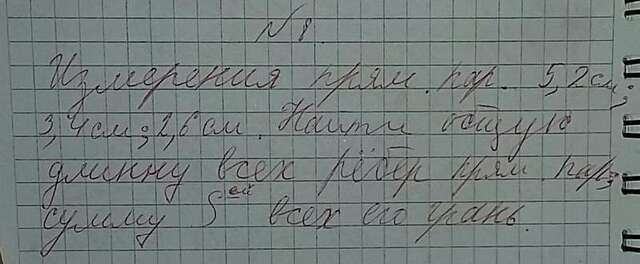 № 8.
Измерения прям. пар. 5,2 см;
3,4 см; 2,6 см. Найти общую
длинну всех рёбер прям. пар;
сумму S ей всех его грань.